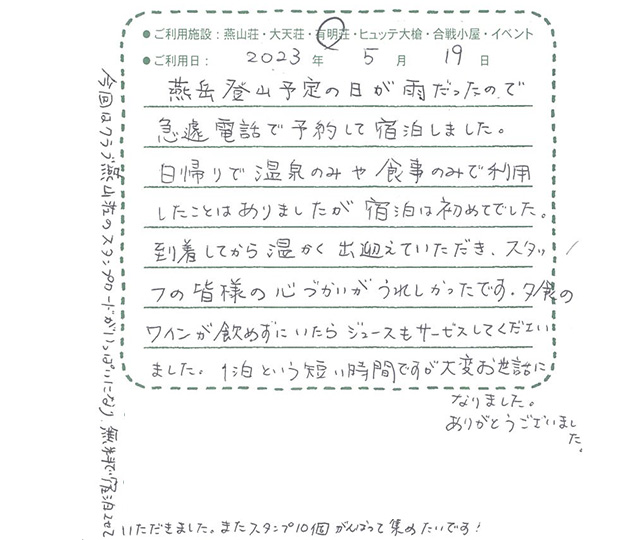 ●ご利用施設：燕山荘・大天荘・有明荘・ヒュッテ大槍・合戦小屋・イベント
●ご利用日： 2023 年 5 月 19 日
燕岳登山予定の日が雨だったので
急遽電話で予約して宿泊しました。
日帰りで温泉のみや食事のみで利用
したことはありましたが宿泊は初めてでした。
到着してから温かく出迎えていただき、スタッ
フの皆様の心づかいがうれしかったです。夕食の
ワインが飲めずにいたらジュースもサービスしてくださいい
ました。1泊という短い時間ですが大変お世話に
なりました。
ありがとうございまし
た。
今回はクラブ燕山荘のスタンプロードがいっぱいになり、無料で宿泊させて
いただきました。またスタンプ10個がんばって集めたいです！